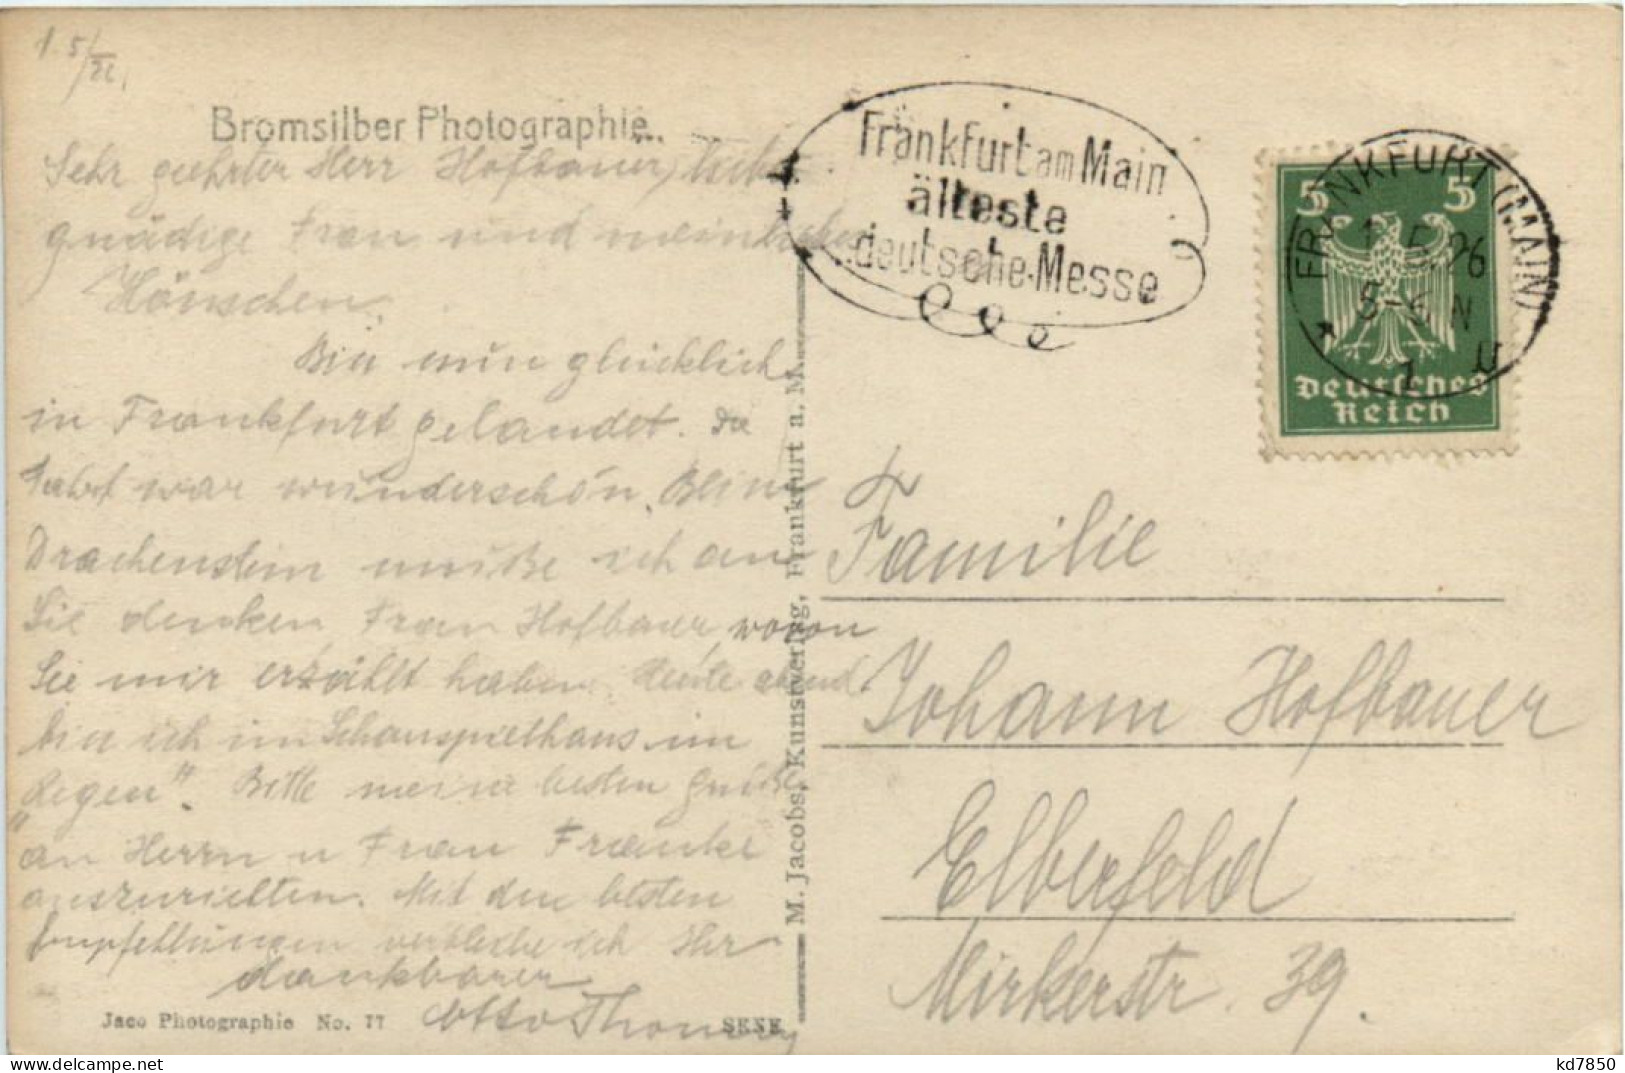 1. 5/26.
Bromsilber Photographie.
Sehr geehrter Herr Hofbauer, liebe
gnädige Frau und mein liebes
Hänschen.
Bin nun glücklich
in Frankfurt gelandet. Die
Fahrt war wunderschön. Beim
Drachenstein mußte ich an
Sie denken Frau Hofbauer, wovon
Sie mir erzählt haben. Heute abend
bin ich im Schauspielhaus im
"Regen". Bitte meine besten Grüße
an Herrn u Frau Franke
auszurichten. Mit den besten
Empfehlungen verbleibe ich Ihr
dankbarer
Otto
Jaco Photographie No. 77
SENE
M. Jacobs, Kunstverlag, Frankfurt a. M.
Frankfurt am Main
älteste
deutsche Messe
FRANKFURT (MAIN)
1.5.26
5-6 N
1 U
5 5
Deutsches
Reich
Familie
Johann Hofbauer
Elberfeld
Mirkerstr. 39.
kd7850